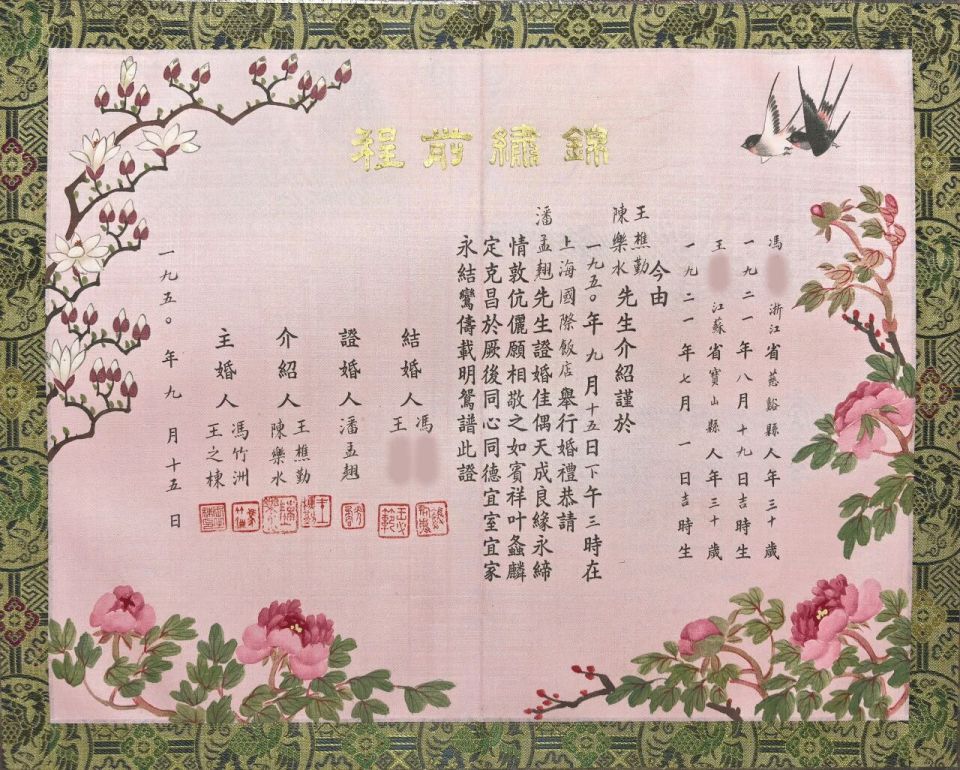 錦繡前程
馮 浙江省慈谿縣人年三十歲
一九二一年八月十九日吉時生
王 江蘇省寶山縣人年三十歲
一九二一年七月一日吉時生
今由
王樵勤
陳樂水先生介紹謹於
一九五〇年九月十五日下午三時在
上海國際飯店舉行婚禮恭請
潘孟翹先生證婚佳偶天成良緣永締
情敦伉儷願相敬之如賓祥叶螽麟
定克昌於厥後同心同德宜室宜家
永結鸞儔載明鴛譜此證
結婚人 馮
王
證婚人 潘孟翹
介紹人 王樵勤
陳樂水
主婚人 馮竹洲
王之棟
一九五〇年九月十五日